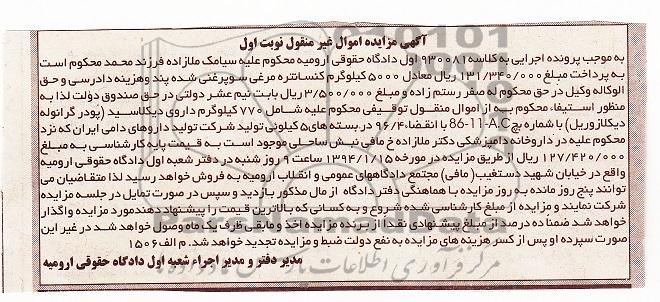 آگهی مزایده اموال غیر منقول نوبت اول
به موجب پرونده اجرایی به کلاسه ۹۳۰۰۸۱ اول دادگاه حقوقی ارومیه محکوم علیه سیامک ملازاده فرزند محمد محکوم است
به پرداخت مبلغ ۱۳۱/۳۴۰/۰۰۰ ریال معادل ۵۰۰۰ کیلوگرم کنسانتره مرغی سوپرغنی شده پند وهزینه دادرسی و حق
الوکاله وکیل در حق محکوم له صفر رستم زاده و مبلغ ۳/۵۰۰/۰۰۰ ریال بابت نیم عشر دولتی در حق صندوق دولت لذا به
منظور استیفاء محکوم به از اموال منقول توقیفی محکوم علیه شامل ۷۷۰ کیلوگرم داروی دیکلاسید (پودر گرانوله
دیکلازوریل) با شماره بچ 86-11-AC با انقضاء ۹۶/۴ در بسته های ۵ کیلوئی تولید شرکت تولید داروهای دامی ایران که نزد
محکوم علیه در داروخانه دامپزشکی دکتر ملازاده خ مافی نبش ساحلی موجود است به قیمت پایه کارشناسی به مبلغ
۱۲۷/۴۲۰/۰۰۰ ریال از طریق مزایده در مورخه ۱۳۹۴/۱/۱۵ ساعت ۹ روز شنبه در دفتر شعبه اول دادگاه حقوقی ارومیه
واقع در خیابان شهید دستغیب (مافی) مجتمع دادگاههای عمومی و انقلاب ارومیه به فروش خواهد رسید لذا متقاضیان می
توانند پنج روز مانده به روز مزایده با هماهنگی دفتر دادگاه از مال مذکور بازدید و سپس در صورت تمایل در جلسه مزایده
شرکت نمایند و مزایده از مبلغ کارشناسی شده شروع و به کسانی که بالاترین قیمت را پیشنهاد دهند مورد مزایده واگذار
خواهد شد ضمنا ده درصد از مبلغ پیشنهادی نقدا از برنده مزایده اخذ و مابقی ظرف یک ماه وصول خواهد شد در غیر این
صورت سپرده او پس از کسر هزینه های مزایده به نفع دولت ضبط و مزایده تجدید خواهد شد. م الف ۱۵۰۶
مدیر دفتر و مدیر اجراء شعبه اول دادگاه حقوقی ارومیه